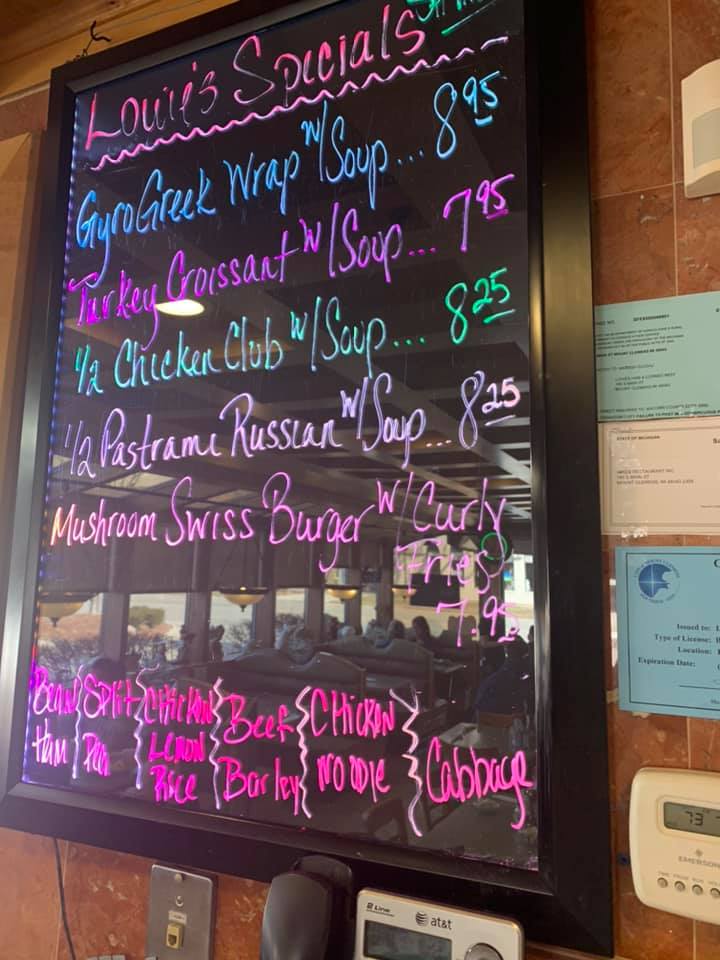 Louie's Specials
GyroGreek Wrap w/Soup... 8.95
Turkey Croissant w/Soup... 7.95
1/2 Chicken Club w/Soup... 8.25
1/2 Pastrami Russian w/Soup... 8.25
Mushroom Swiss Burger w/Curly
Fries
7.95
Bean
Ham
Split
Pea
Chicken
Lemon
Rice
Beef
Barley
Chicken
Noodle
Cabbage
STATE OF MICHIGAN
Issued to:
Type of License:
Location:
Expiration Date:
73
EMERSON
2 Line
at&t